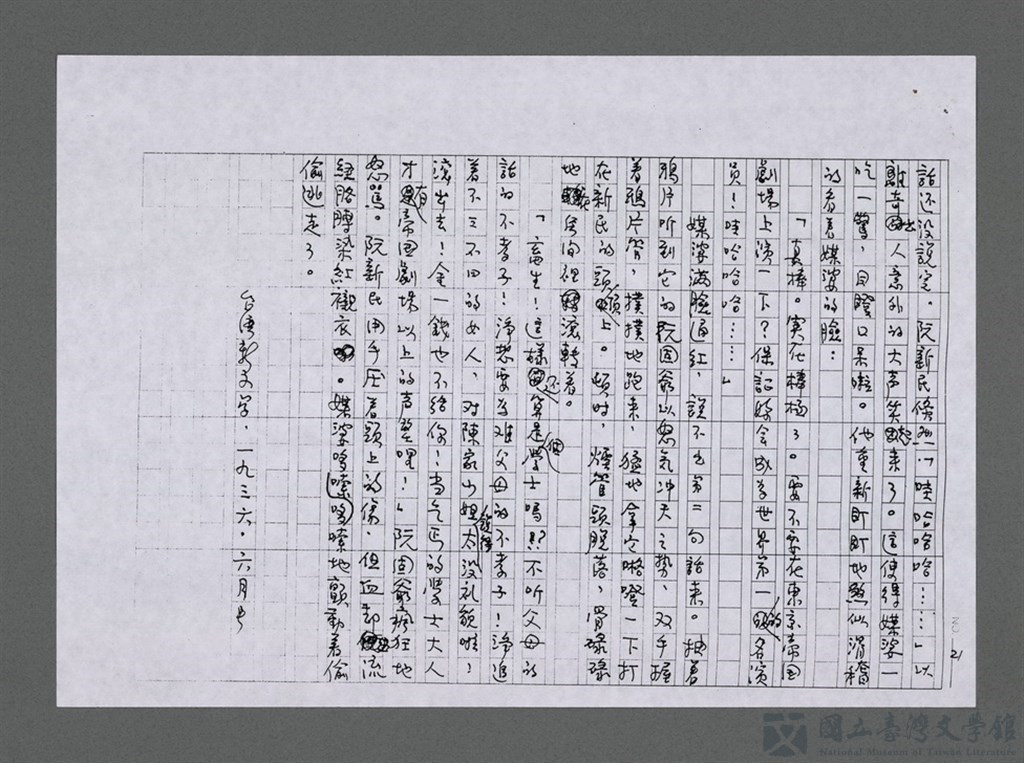 話还没說完。阮新民倏然「哇哈哈哈……」以
離奇出人意外的大声笑起來了。這使得媒婆一
吃一驚，目瞪口呆啦。他重新盯盯地煞似滑稽
的看着媒婆的臉：
「真棒。实在棒極了。要不要在東京帝国
劇場上演一下？保証妳会成为世界第一的名演
員！哇哈哈哈……」
媒婆滿臉通紅，說不出第二句話來。抽着
鴉片听到它的阮固爺以怒氣冲天之勢，双手握
着鴉片管，撲撲地跑來，猛地拿它啪噔一下打
在新民的頭頂上。頓時，煙管頭脫落，骨碌碌
地房间裡滾轉着。
「畜生！這樣还算是學士嗎？不听父母的
話的不孝子！淨想要为难父母的不孝子！淨追
着不三不四的女人，对陳家小姐太没礼貌啦！
滾出去！金一錢也不給你！当乞丐的學士大人
才有帝国劇場以上的声望哩！」阮固爺瘋狂地
怒罵。阮新民用手压着頭上的傷，但血却流
經胳膊染紅襯衣。媒婆哆嗦哆嗦地顫動着偷
偷逃走了。
台灣新文学，一九三六．六月号
21
國立臺灣文學館
National Museum of Taiwan Literature